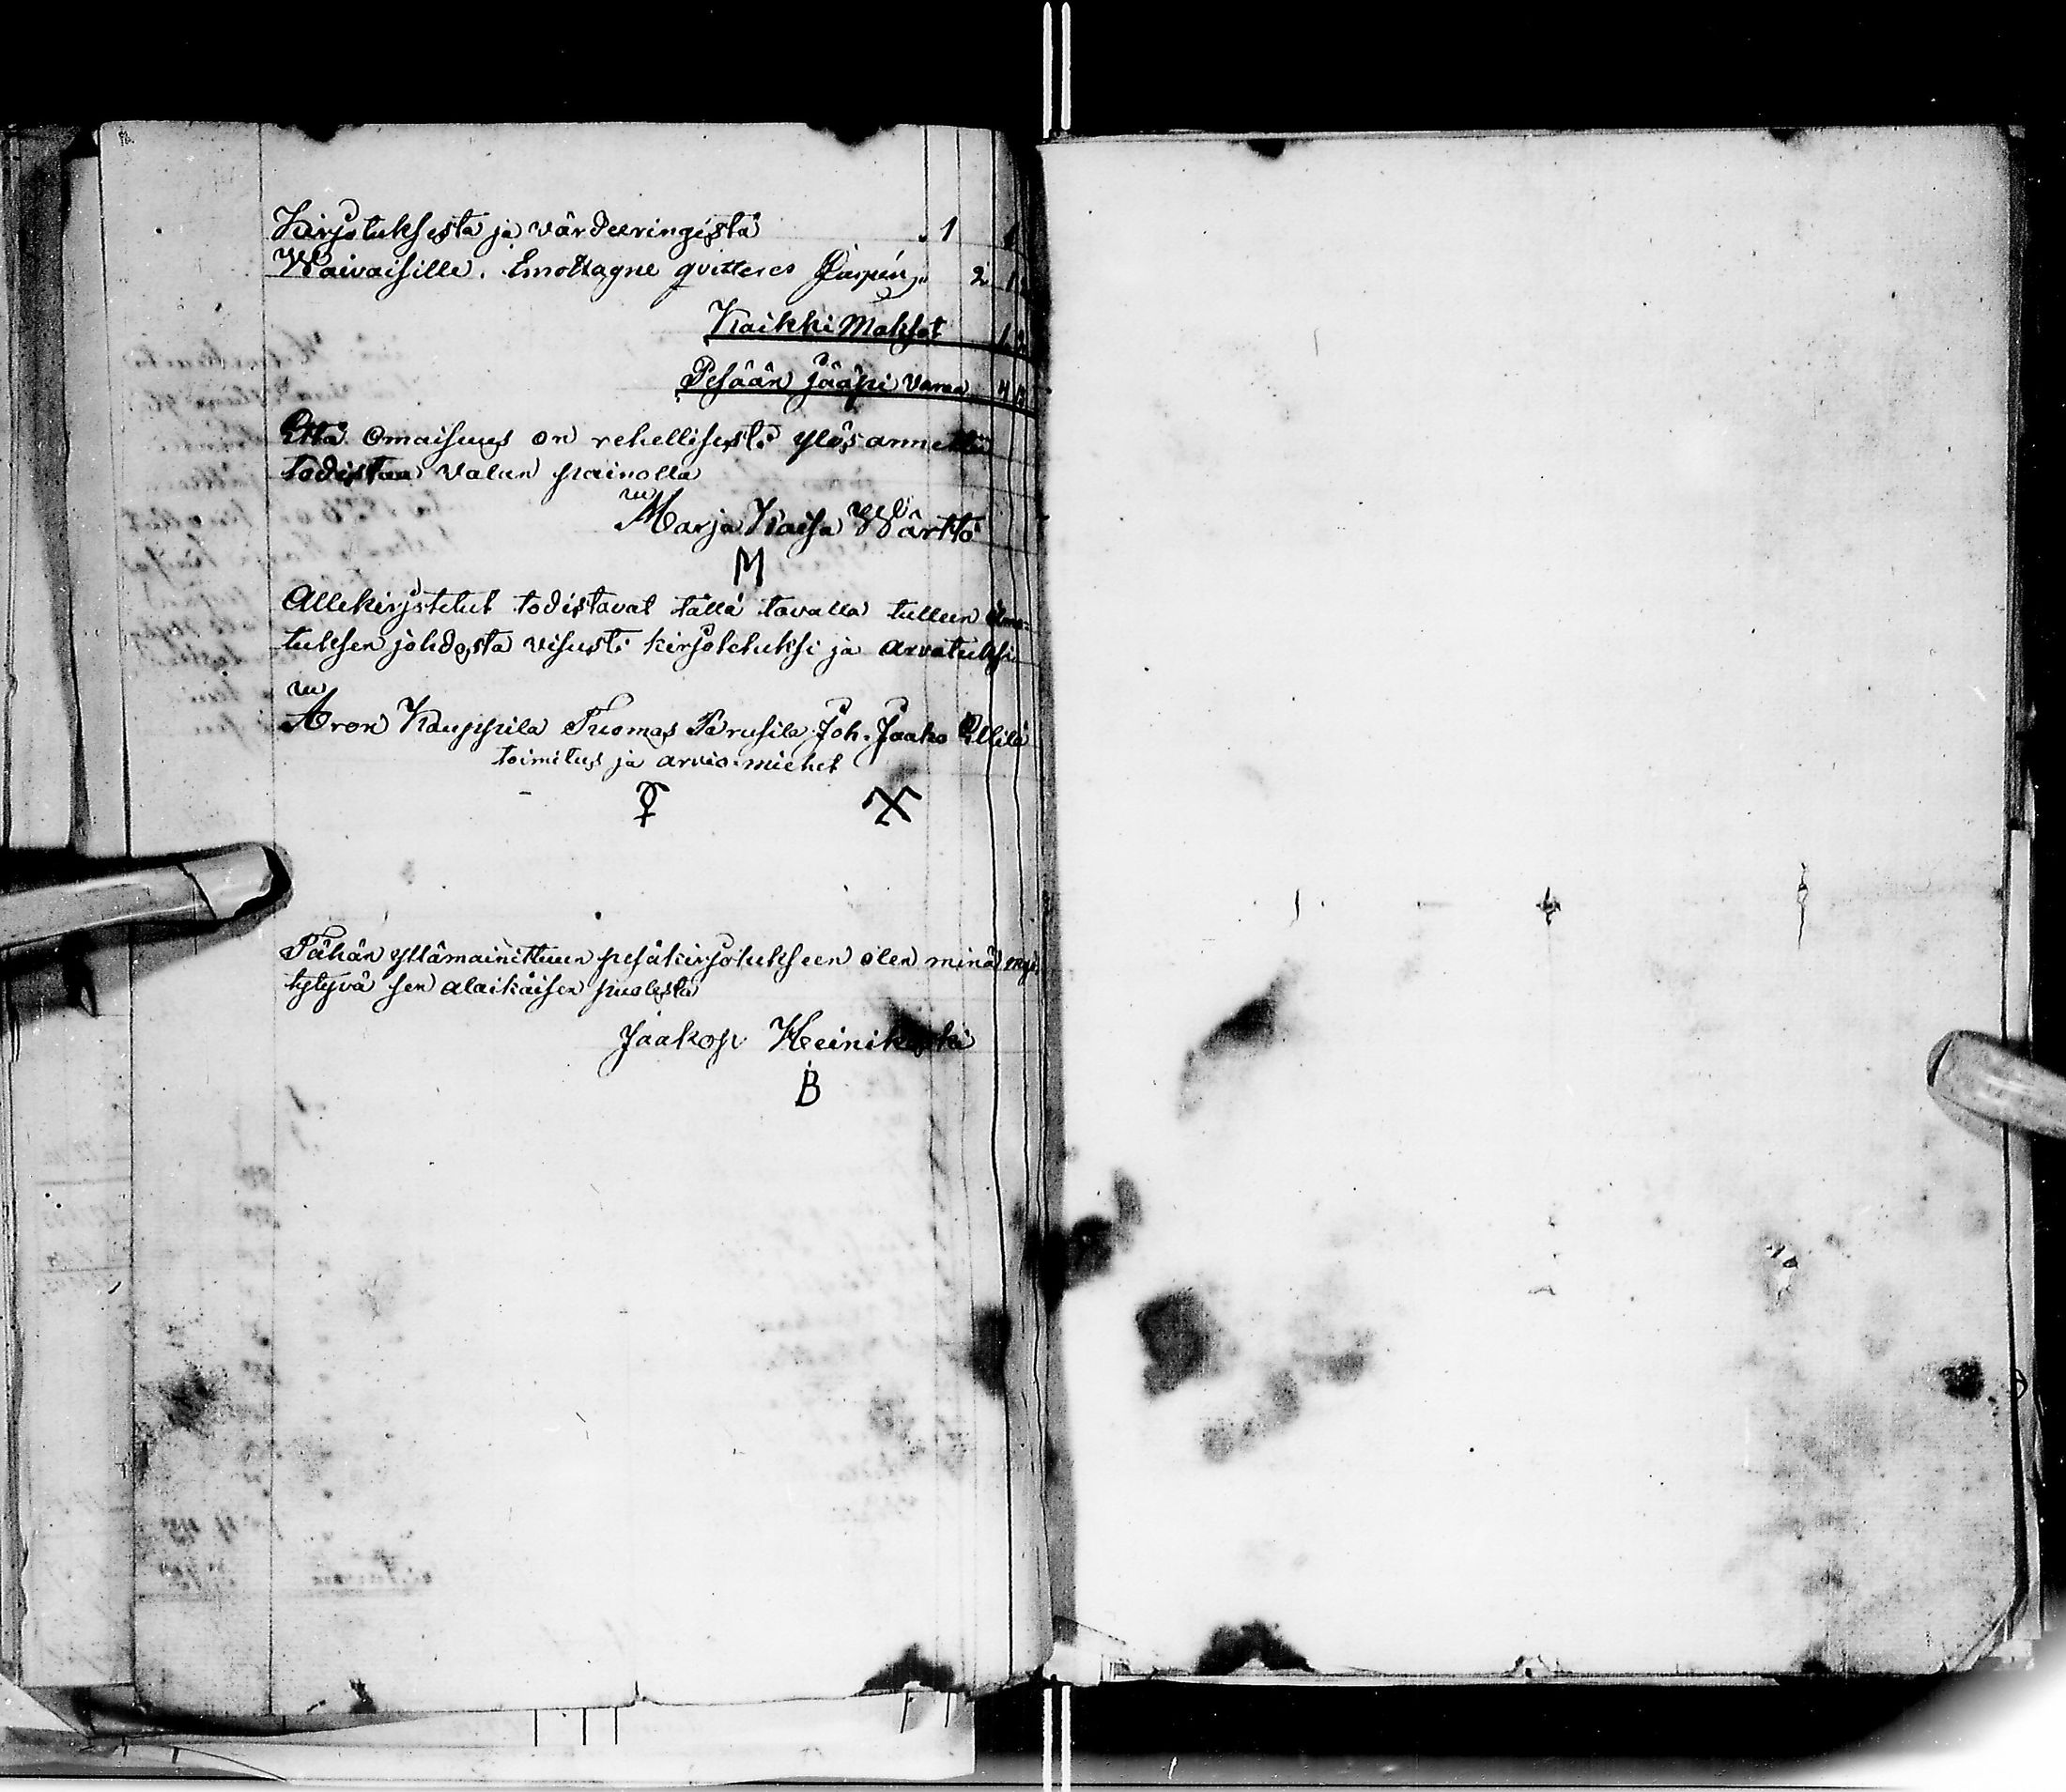 Kirjotuksesta ja värdeeringistä 1
Waivaisille. Emottagne qvitteres 2
Kaikki Maksot
Pesään jääpi varaa
Että Omaisuus on rehellisesti ylösannettu
todistaa valan painolla
Marja Kaisa Wärttö
M
Allekirjotetut todistavat tällä tavalla tulleen ilmo-
tuksen johdosta visusti kirjotetuksi ja arvatuksi
Aron Kauppila Tuomas Parusila Joh. Jaako Ellilä
toimitus ja arvio miehet
Tähän yllämainittuun pesäkirjotukseen olen minä
tytyvä sen alaikäisen puolesta
Jaakop Heinikoski
B